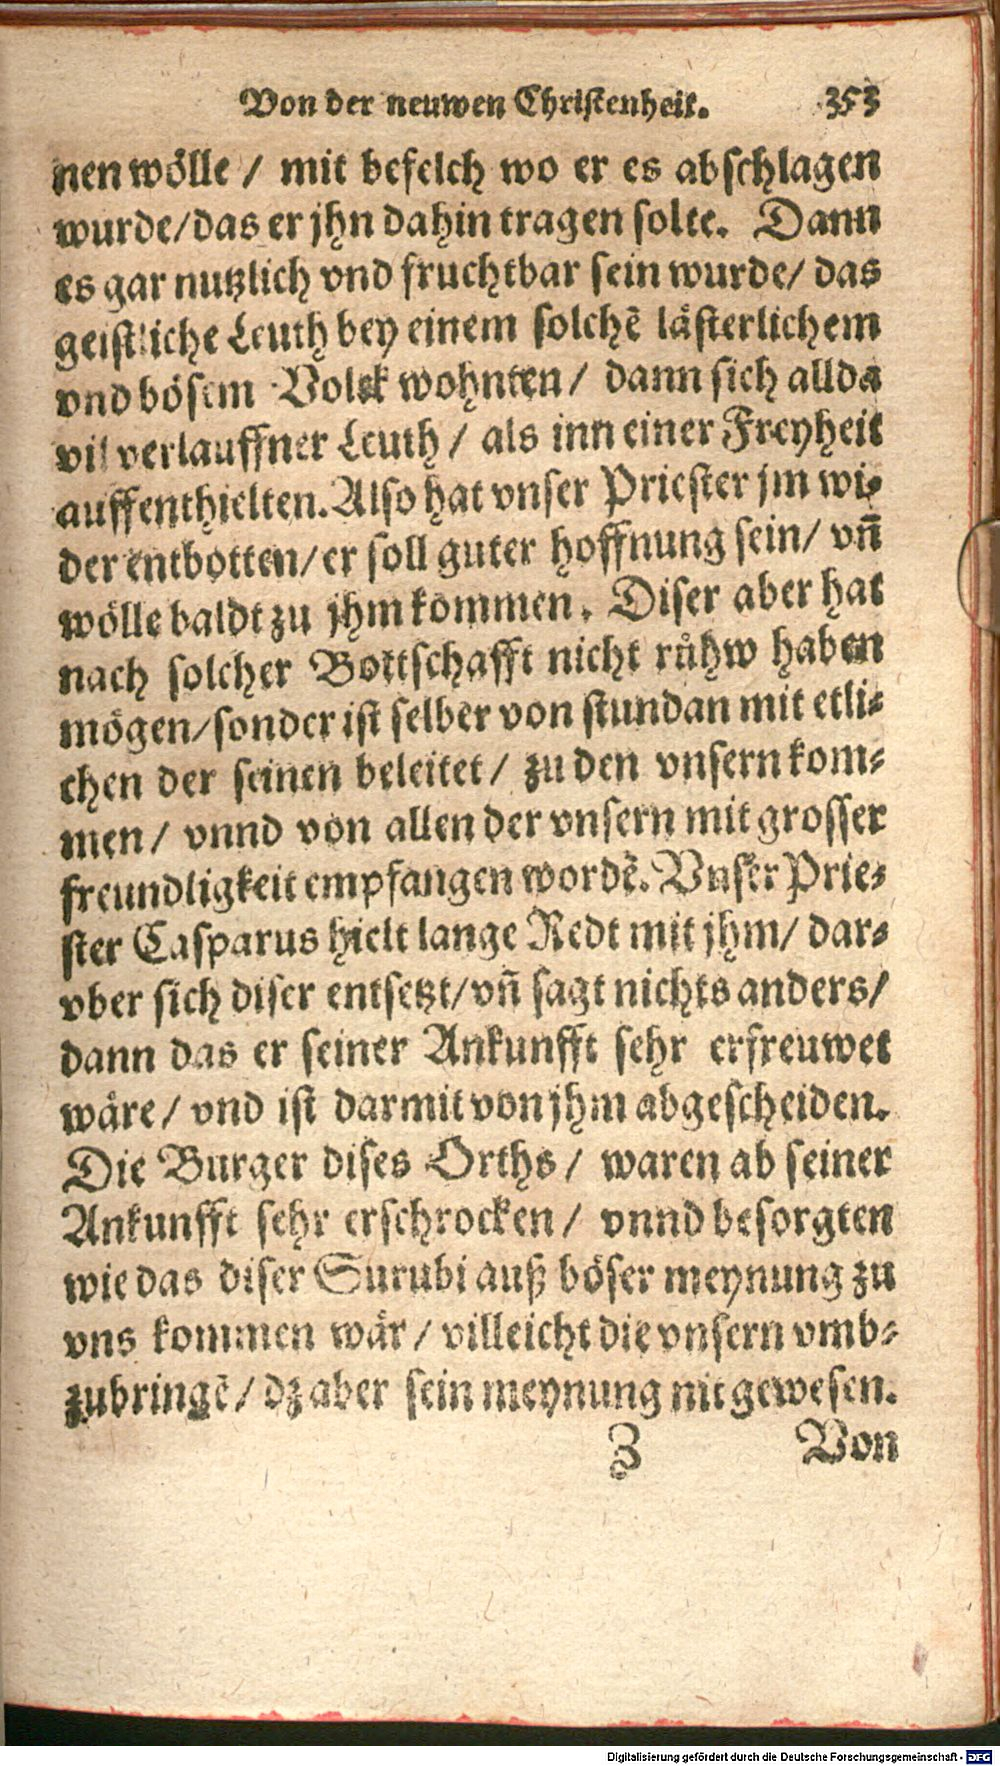 Von der neuwen Christenheit. 353
nen wölle / mit befelch wo er es abschlagen
wurde/das er jhn dahin tragen solte. Dann
es gar nutzlich vnd fruchtbar sein wurde/ das
geistliche Leuth bey einem solchē lästerlichem
vnd bösem Volck wohnten/ dann sich allda
vil verlauffner Leuth / als inn einer Freyheit
auffenthielten. Also hat vnser Priester jm wi-
der entbotten/er soll guter hoffnung sein/ vñ
wölle baldt zu jhm kommen. Diser aber hat
nach solcher Bottschafft nicht růhw haben
mögen/sonder ist selber von stundan mit etli-
chen der seinen beleitet/ zu den vnsern kom-
men/ vnnd von allen der vnsern mit grosser
freundligkeit empfangen wordē. Vnser Prie-
ster Casparus hielt lange Redt mit jhm/ dar-
vber sich diser entsetzt/vñ sagt nichts anders/
dann das er seiner Ankunfft sehr erfreuwet
wäre/ vnd ist darmit von jhm abgescheiden.
Die Burger dises Orths/ waren ab seiner
Ankunfft sehr erschrocken/ vnnd besorgten
wie das diser Surubi auß böser meynung zu
vns kommen wär/ villeicht die vnsern vmb-
zubringē/ dz aber sein meynung nit gewesen.
Z Von
Digitalisierung gefördert durch die Deutsche Forschungsgemeinschaft - DFG